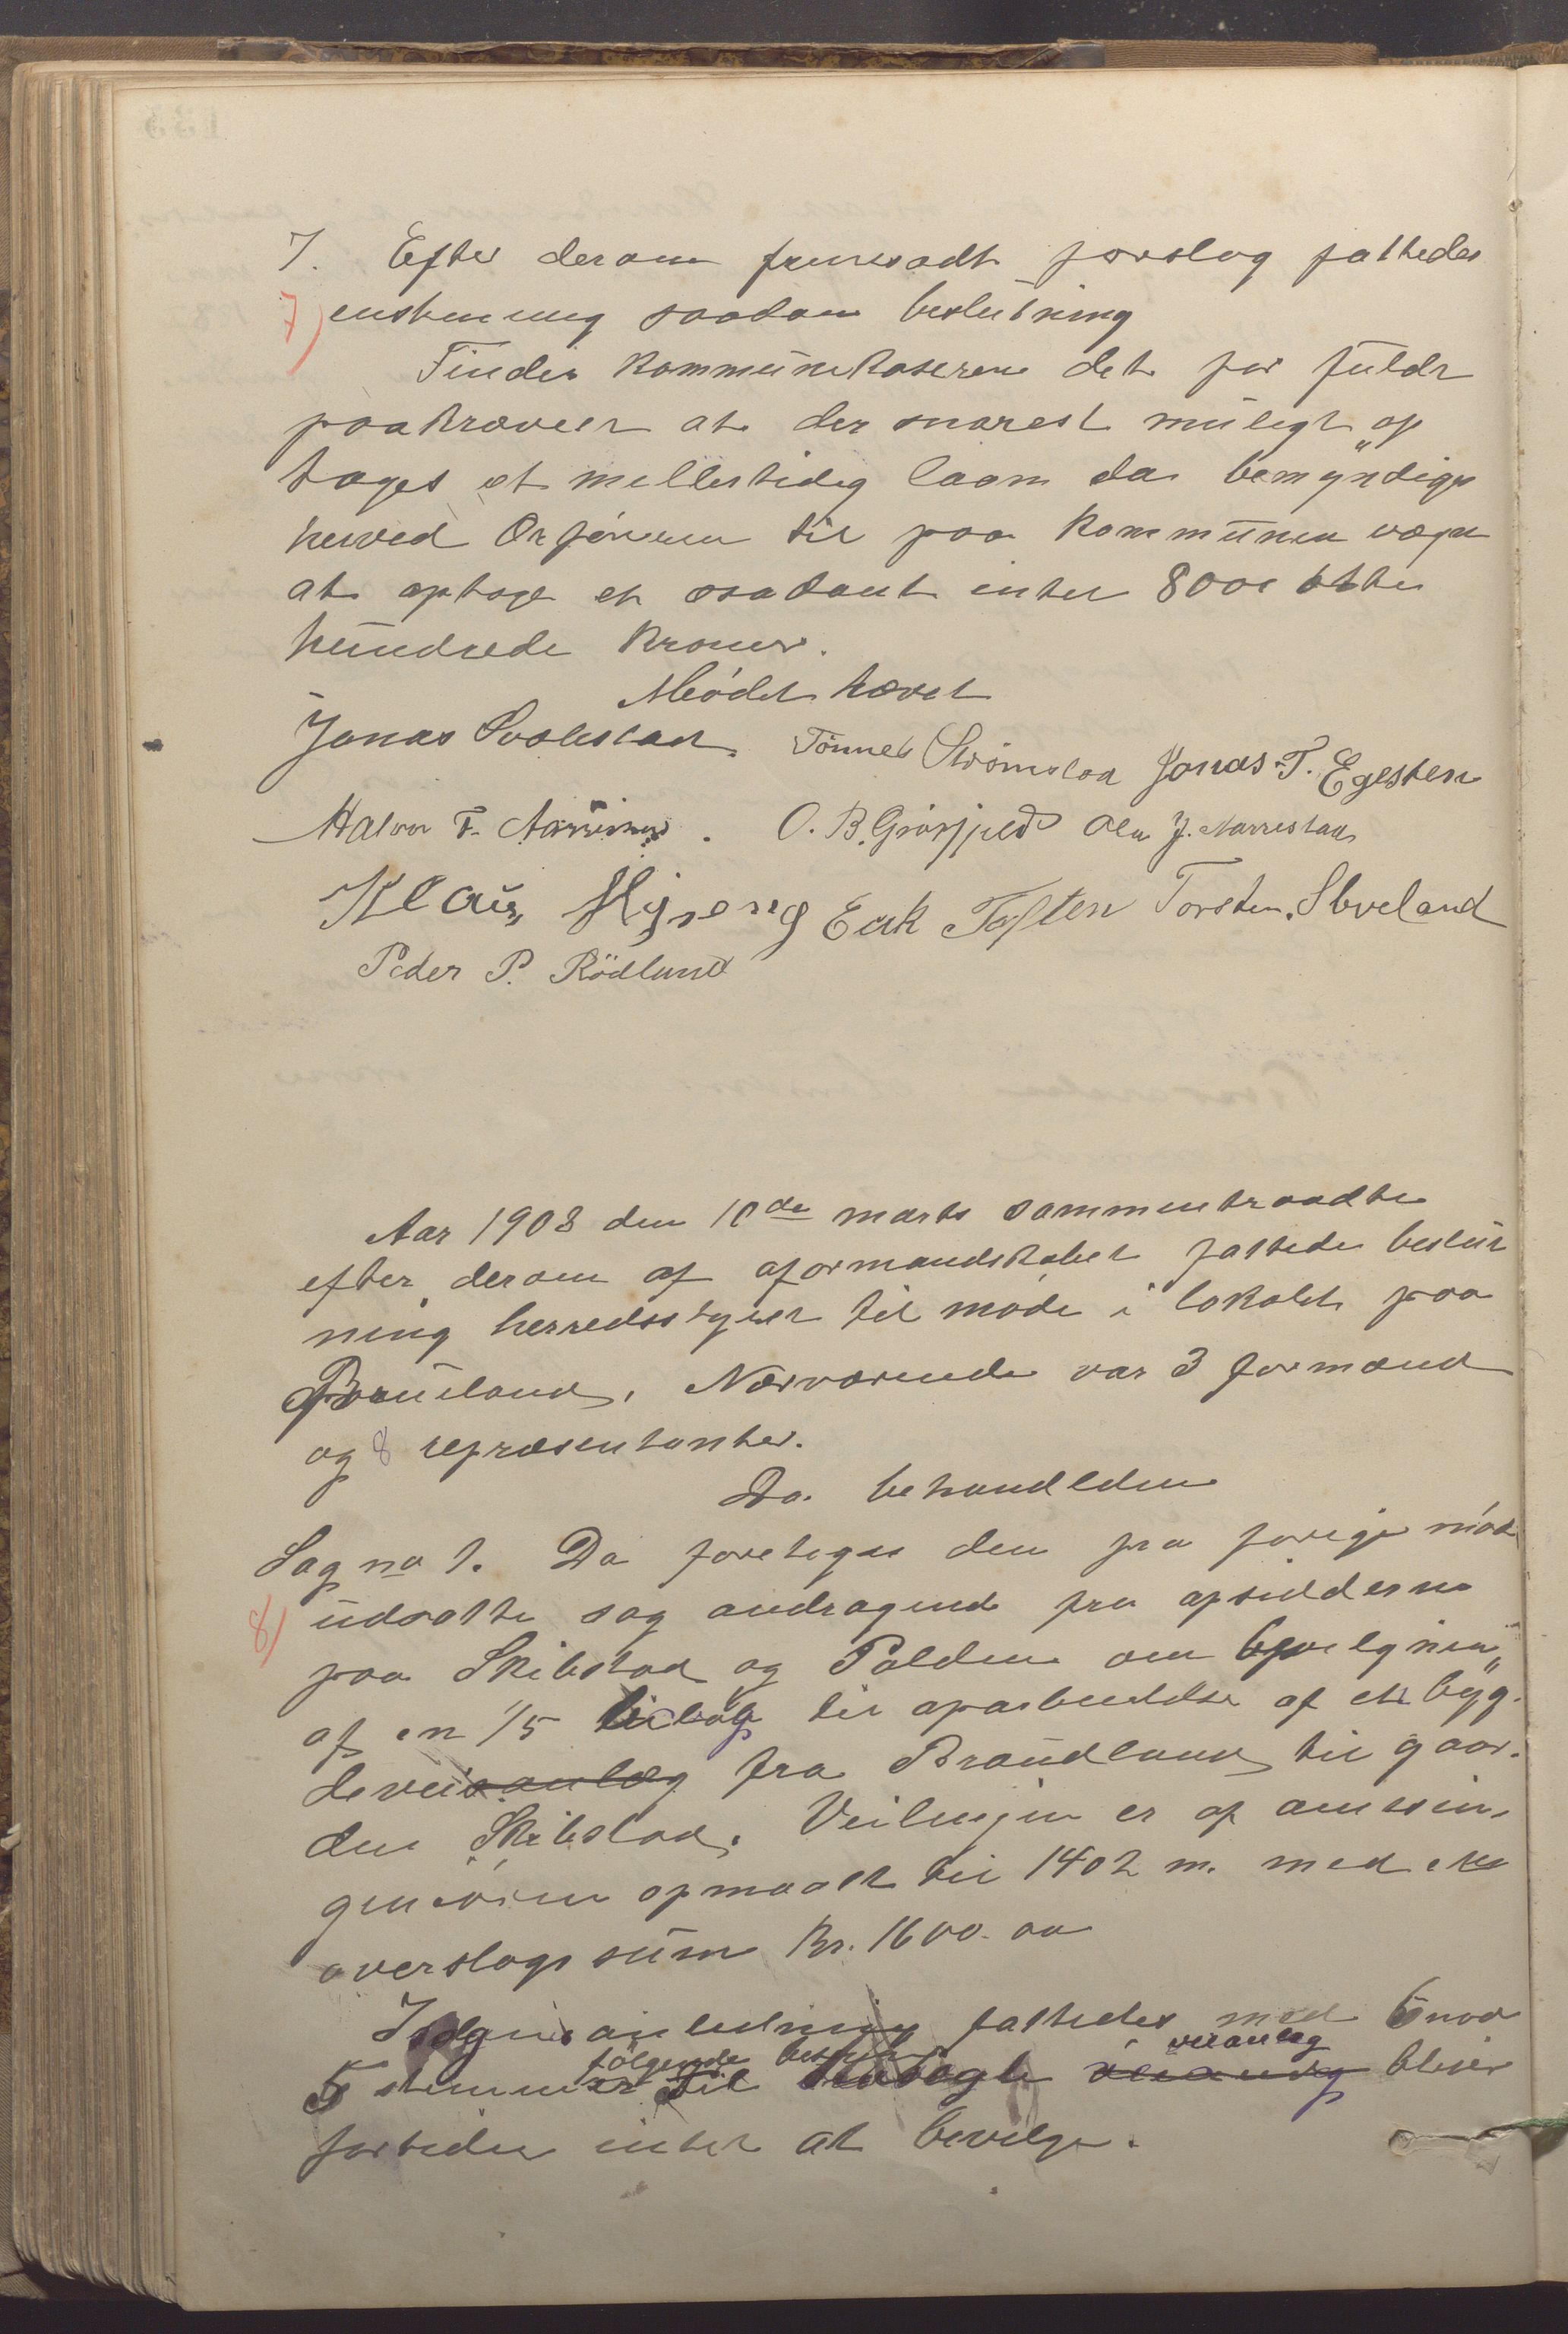 7. Efter derom fremsadt forslag fattedes
7) enstemmig saadan beslutning
Finder Kommunekaseren det for fuldt
paakrævet at der snarest muligt op"
tages et mellertidig laan da bemyndiges
herved Orføreren til paa Kommunens vægne
at optage et saadant intil 800 otte
hundrede Kroner.
Mødet hævet
Jonas Svalestad. Tönnes Strömstad Jonas T. Egesten
Halvor T. O. B. Grösfjeld Ole J. Narrestad
Klaus Eik Toften Torsten Sleveland
Peder P. Rödland
Aar 1908 den 10de marts sammentraadte
efter derom af formandskabet fattede beslut
ning herredsstyret til møde i lokalet paa
Braudland. Nærværende var 3 formænd
og 8 repræsentanter.
Da behandledes
Sag no 1. Da foretoges den fra forrige møde
8) udsatte sag andragende fra opsidderne
paa Skibstad og Polden om bevilgning
af en 1/5 bidrag til oparbeidelse af et byg-
deveisanlæg fra Braudland til gaar-
den Skibstad. Veilengden er af amtsin-
geniøren opmaalt til 1402 m. med en
overslags sum Kr. 1600.00
I sagens anledning fattedes med 6 mod
følgende beslutn veianlæg
5 stemmer Til blir
fortiden intet at bevilge.